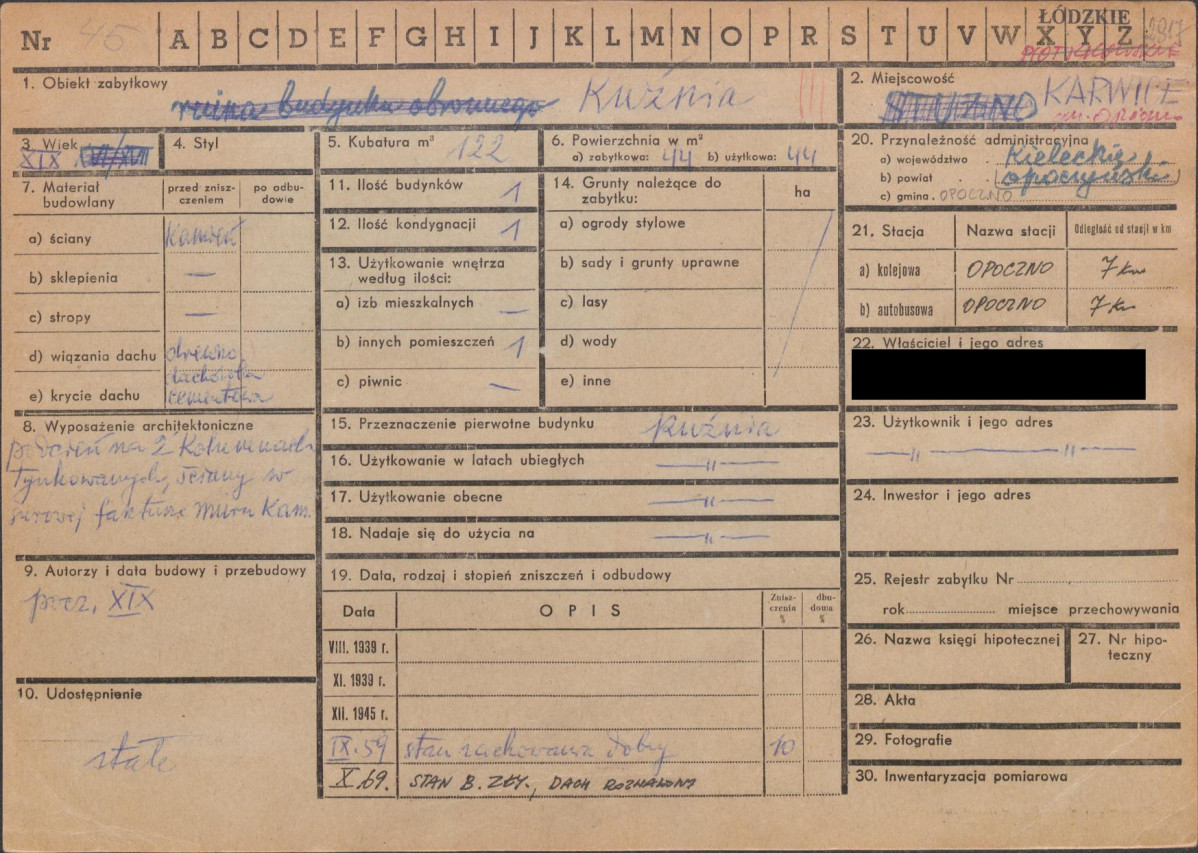 Nr 45 A B C D E F G H I J K L M N O P R S T U V W X Y Z
ŁÓDZKIE
1. Obiekt zabytkowy
ruina budynku obronnego Kuźnia
2. Miejscowość
KARWICE
gm. Opoczno
3. Wiek
XIX XVI/XVII
4. Styl
5. Kubatura m³ 122
6. Powierzchnia w m²
a) zabytkowa: 44 b) użytkowa: 44
7. Materiał budowlany
przed zniszczeniem
po odbudowie
a) ściany kamień
b) sklepienia —
c) stropy —
d) wiązania dachu drewno
e) krycie dachu dachówka cementowa
8. Wyposażenie architektoniczne
podcień na 2 kolumnach
tynkowanych, ściany w
surowej fakturze muru kam.
9. Autorzy i data budowy i przebudowy
pocz. XIX
10. Udostępnienie
stałe
11. Ilość budynków 1
12. Ilość kondygnacji 1
13. Użytkowanie wnętrza
według ilości:
a) izb mieszkalnych —
b) innych pomieszczeń 1
c) piwnic —
14. Grunty należące do
zabytku:
ha
a) ogrody stylowe
b) sady i grunty uprawne
c) lasy
d) wody
e) inne
15. Przeznaczenie pierwotne budynku Kuźnia
16. Użytkowanie w latach ubiegłych —"—
17. Użytkowanie obecne —"—
18. Nadaje się do użycia na —"—
19. Data, rodzaj i stopień zniszczeń i odbudowy
Data OPIS Zniszczenia % dbudowa %
VIII. 1939 r.
XI. 1939 r.
XII. 1945 r.
IX. 59 stan zachowania dobry 10
X. 69. STAN B. ZŁY., DACH ROZWALONY
20. Przynależność administracyjna
a) województwo Kieleckie
b) powiat opoczyński
c) gmina OPOCZNO
21. Stacja Nazwa stacji Odległość od stacji w km
a) kolejowa OPOCZNO 7 km
b) autobusowa OPOCZNO 7 km
22. Właściciel i jego adres
23. Użytkownik i jego adres
—"— —"—
24. Inwestor i jego adres
25. Rejestr zabytku Nr
rok miejsce przechowywania
26. Nazwa księgi hipotecznej
27. Nr hipoteczny
28. Akta
29. Fotografie
30. Inwentaryzacja pomiarowa